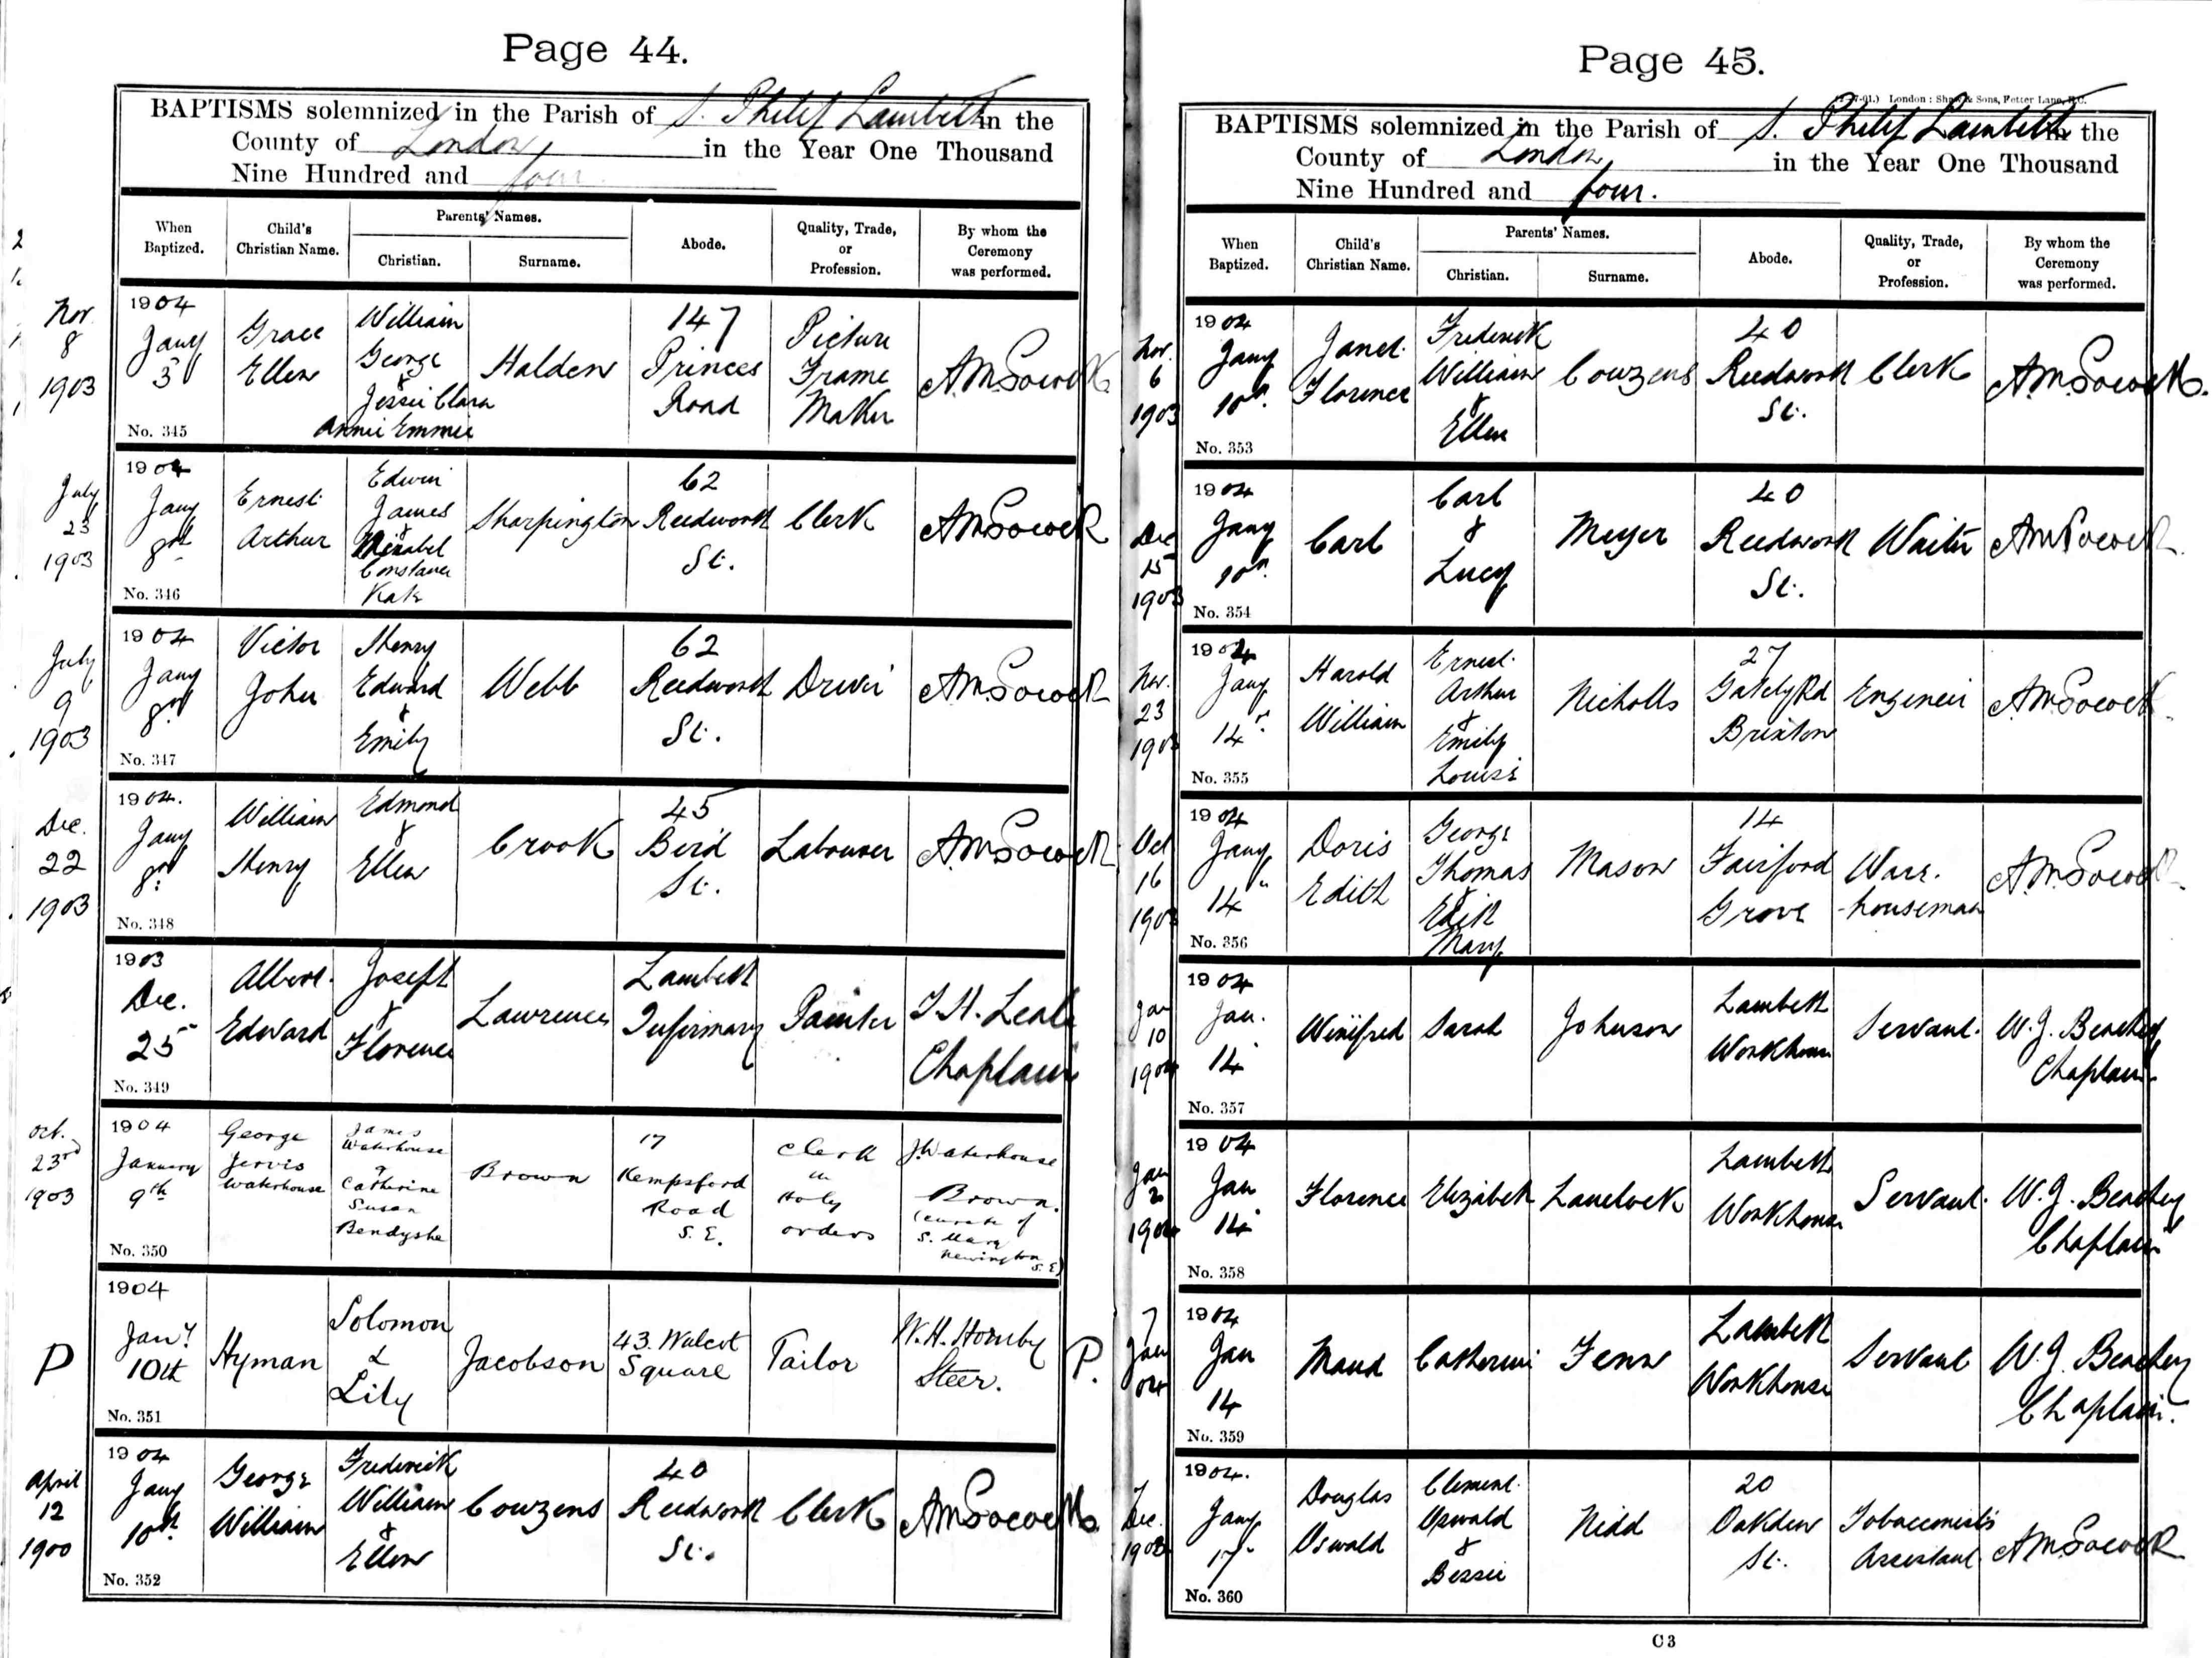 Page 44.
BAPTISMS solemnized in the Parish of S. Philip Lambeth in the
County of London, in the Year One Thousand
Nine Hundred and four
When Baptized.
Child's Christian Name.
Parents' Names.
Christian.
Surname.
Abode.
Quality, Trade, or Profession.
By whom the Ceremony was performed.
Nov. 8 1903
1904 Jany 3
No. 345
Grace Ellen
William George & Jessie Clara Annie Emmie
Halden
147 Princes Road
Picture Frame Maker
A.M. Pocock
July 23 1903
1904 Jany 8th
No. 346
Ernest Arthur
Edwin James & Constance Kate
Sharpington
62 Reedworth St.
Clerk
A.M. Pocock
July 9 1903
1904 Jany 8th
No. 347
Victor John
Henry Edward & Emily
Webb
62 Reedworth St.
Driver
A.M. Pocock
Dec. 22 1903
1904. Jany 8th
No. 348
William Henry
Edmond & Ellen
Crook
45 Bird St.
Labourer
A.M. Pocock
1903 Dec. 25
No. 349
Albert Edward
Joseph & Florence
Lawrence
Lambeth Infirmary
Painter
Chaplain
Oct. 23rd 1903
1904 January 9th
No. 350
George Jervis Waterhouse
James Waterhouse & Catherine Susan Bendyshe
Brown
17 Kempsford Road S.E.
Clerk in Holy orders
J. Waterhouse Brown. (curate of S. Mary Newington S.E)
P
1904 Jany 10th
No. 351
Hyman
Solomon & Lily
Jacobson
43. Walcot Square
Tailor
W.H. Hornby Steer.
P.
April 12 1900
1904 Jany 10th
No. 352
George William
Frederick William & Ellen
Couzens
40 Reedworth St.
Clerk
A.M. Pocock
Page 45.
London: Shaw & Sons, Fetter Lane, E.C.
BAPTISMS solemnized in the Parish of S. Philip Lambeth in the
County of London, in the Year One Thousand
Nine Hundred and four.
When Baptized.
Child's Christian Name.
Parents' Names.
Christian.
Surname.
Abode.
Quality, Trade, or Profession.
By whom the Ceremony was performed.
Nov. 6 1903
1904 Jany 10th
No. 353
Janet Florence
Frederick William & Ellen
Couzens
40 Reedworth St.
Clerk
A.M. Pocock
Dec 15 1903
1904 Jany 10th
No. 354
Carl
Carl & Lucy
Meyer
40 Reedworth St.
Waiter
A.M. Pocock
Nov. 23 1903
1904 Jany 14th
No. 355
Harold William
Ernest Arthur & Emily Louise
Nicholls
27 Gately Rd Brixton
Engineer
A.M. Pocock
Oct 16 1903
1904 Jany 14
No. 356
Doris Edith
George Thomas & Edith Mary
Mason
14 Fairford Grove
Ware-houseman
A.M. Pocock
Jan 10 1904
1904 Jan. 14
No. 357
Winifred
Sarah
Johnson
Lambeth Workhouse
Servant.
W.J. Beachey Chaplain
Jan 2 1904
1904 Jan 14
No. 358
Florence
Elizabeth
Lanelock
Lambeth Workhouse
Servant.
W.J. Beachey Chaplain
7 Jan 04
1904 Jan 14
No. 359
Maud
Catherine
Fenn
Lambeth Workhouse
Servant
W.J. Beachey Chaplain.
7 Dec. 1903
1904. Jany 17
No. 360
Douglas Oswald
Clement Oswald & Bessie
Nidd
20 Oakden St.
Tobacconist's Assistant
A.M. Pocock
C3